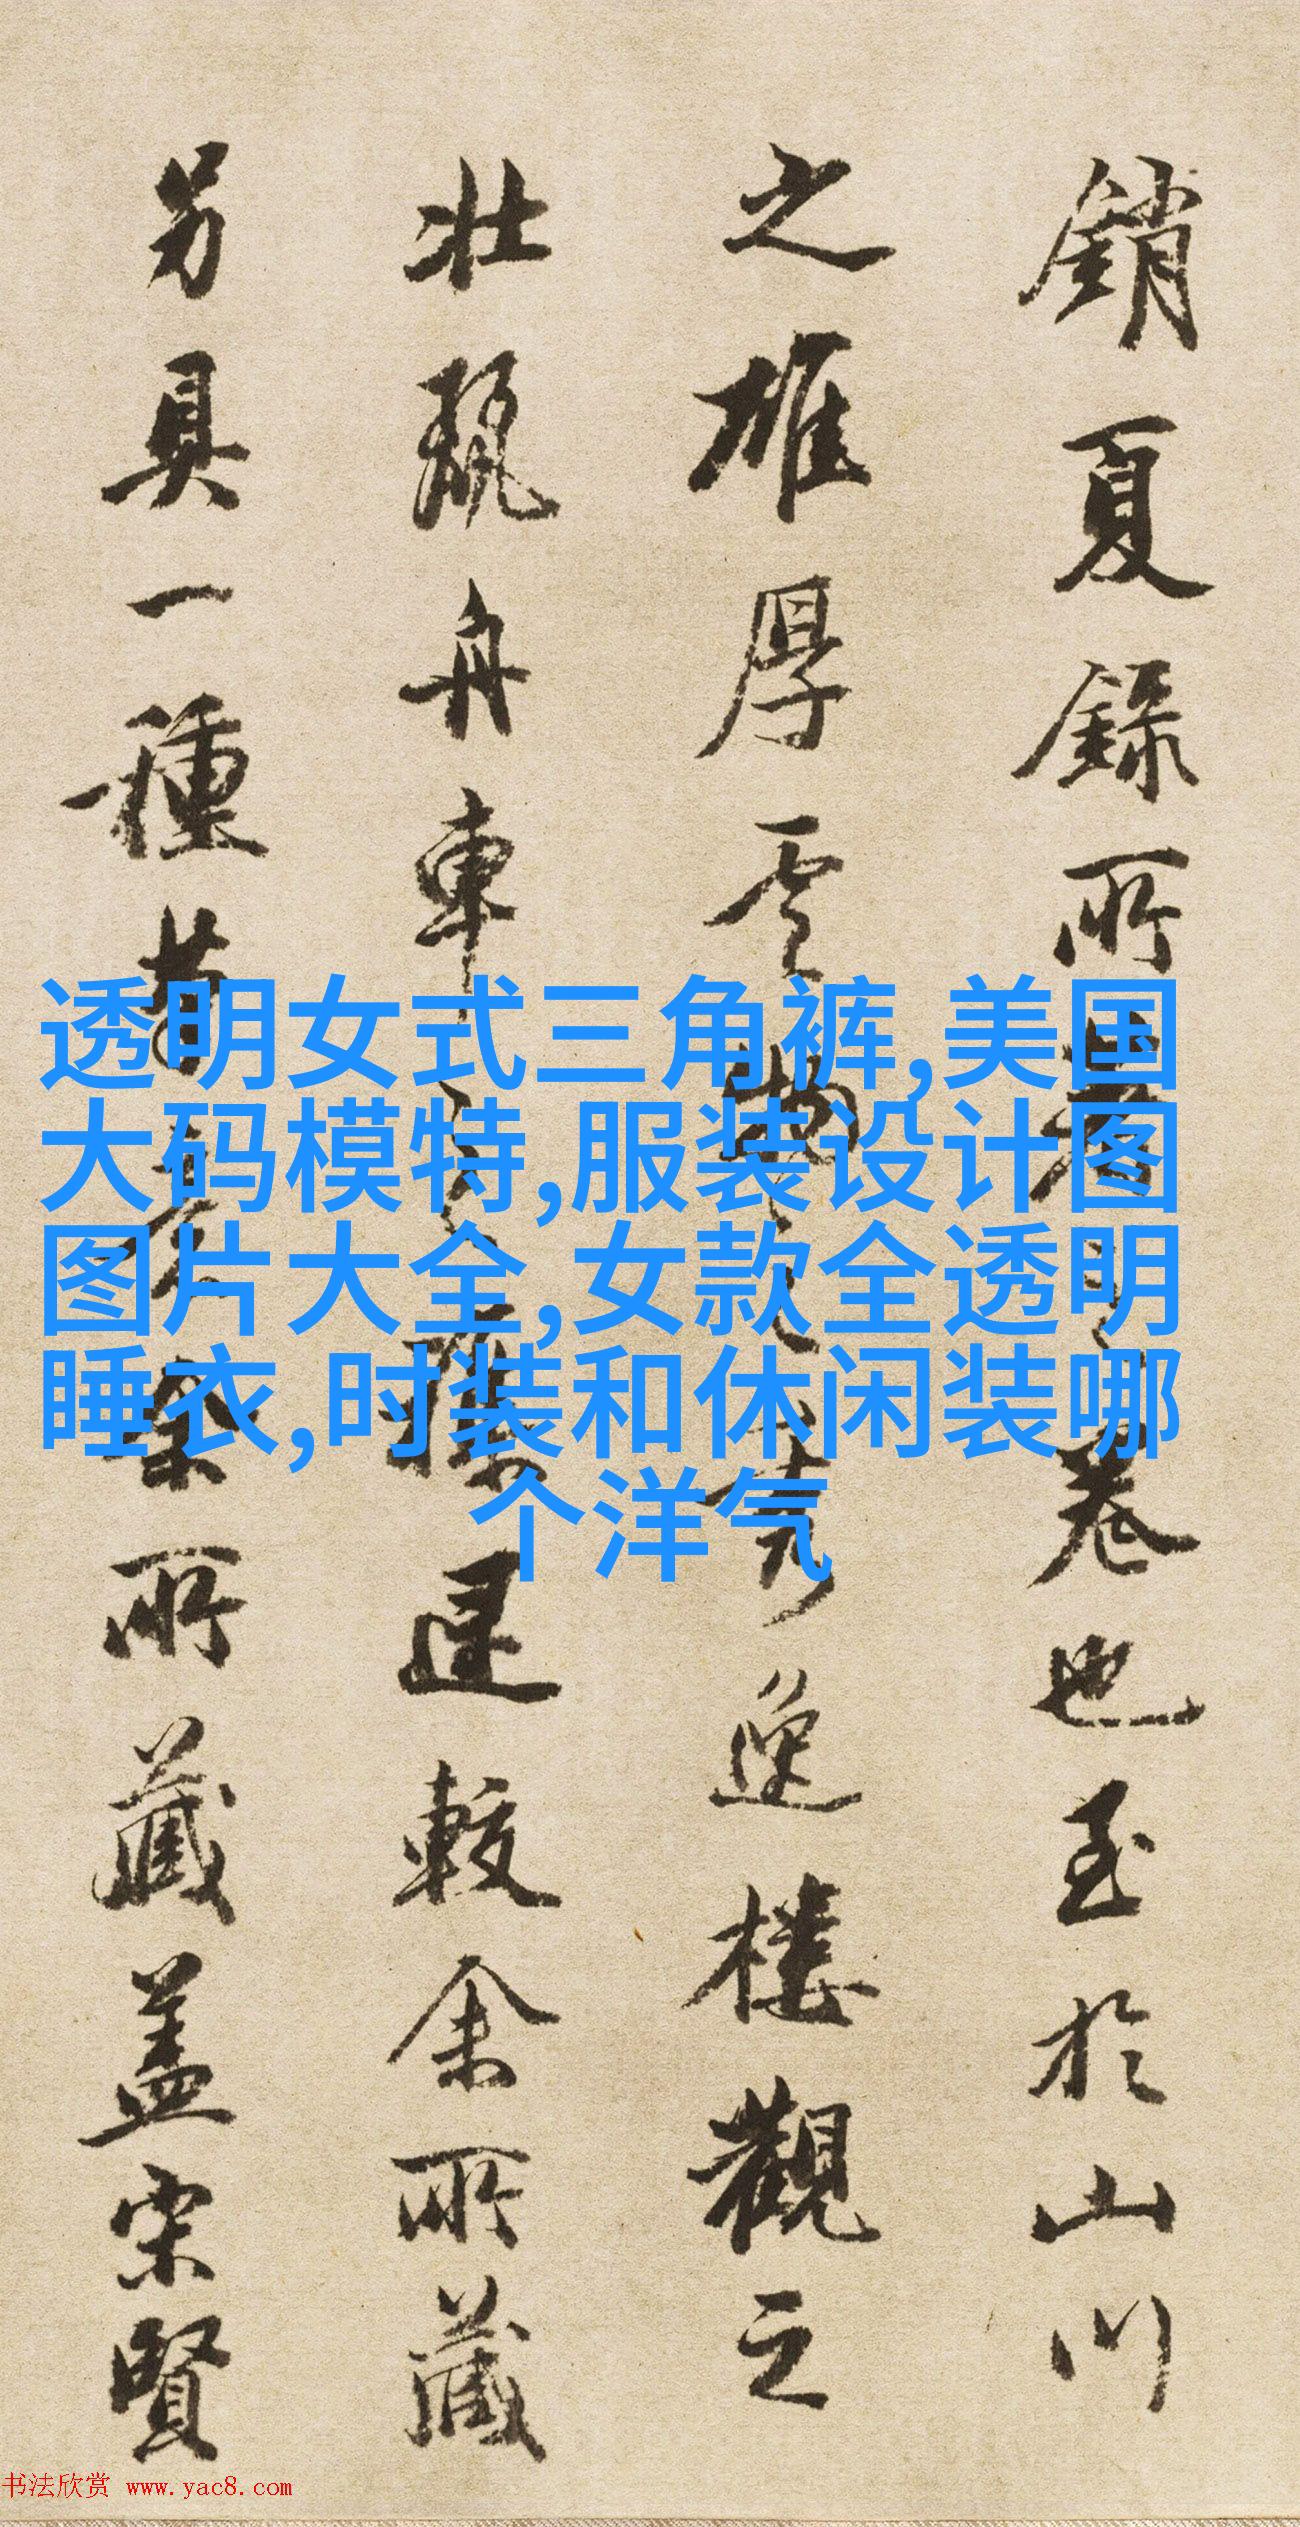 銷夏録所
卷也至於山川
之雄厚雲物之
秀逸樓觀之
壯麗舟車之
迅較余所藏
另具一種
昔
余所藏蓋宋賢
透明女式三角裤,美国
大码模特,服装设计图
图片大全,女款全透明
睡衣,时装和休闲装哪
个洋气
书法欣赏 www.yac8.com